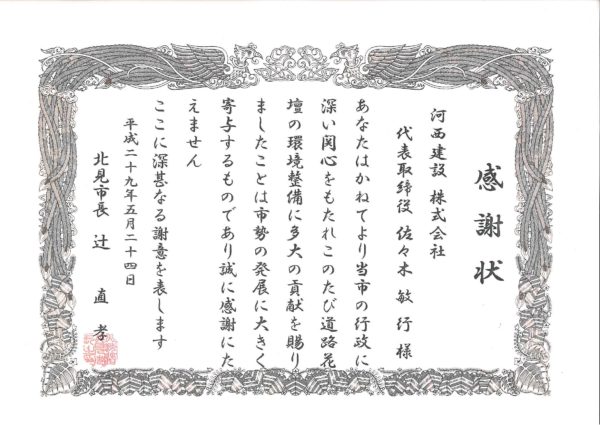 感謝状
河西建設 株式会社
代表取締役 佐々木 敏行 様
あなたはかねてより当市の行政に
深い関心をもたれこのたび道路花
壇の環境整備に多大の貢献を賜り
ましたことは市勢の発展に大きく
寄与するものであり誠に感謝にた
えません
ここに深甚なる謝意を表します
平成二十九年五月二十四日
北見市長 辻 直孝